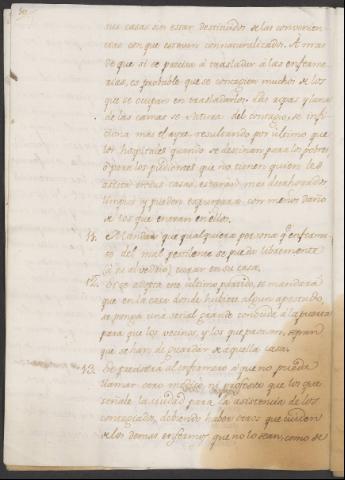 sus casas sin estar destituidos de las convenien-
cias con que estavan connaturalizados. A mas
de que si se precisa à trasladar à las enferme-
rias, es probable que se contagien muchos de los
que se ocupen en trasladarlos. Las ropas y lana
de las camas se del contagio, se infi-
ciona mas el ayre, resultando por ultimo que
los hospitales quando se destinan para los pobres
ò para los pudientes que no tienen quien les
asista en sus casas, estaran mas desahogados
limpios y pueden con menos daño
de los que entran en ellos.
11. Mandar que qualquiera persona qe enferma-
se del mal pestilente se pueda libremente
(à su alvedrio) curar en su casa.
12. Si se adopta este ultimo partido, se mandarà
que en la casa donde hubiere algun apestado,
se ponga una señal grande conocida à la puerta
para que los vecinos, y los que pasaran, sepan
que se han de guardar de aquella casa.
13. Se al enfermero à que no pueda
llamar otro medico ni profesor que los que
señale la ciudad para la asistencia de los
contagiados, debiendo haber otros que cuiden
de los demas enfermos que no lo sean, como se